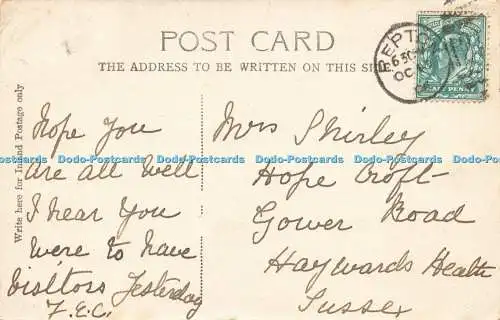 POST CARD
THE ADDRESS TO BE WRITTEN ON THIS SIDE
Write here for Inland Postage only
Hope you
are all well
I hear you
were to have
visitors yesterday
F.E.C.
Mrs Shirley
Hope Croft
Gower Road
Haywards Heath
Sussex
REPTO
OC
HALF PENNY
Dodo-Postcards Dodo-Postcards Dodo-Postcards Dodo-Postcards Dodo-Postcards